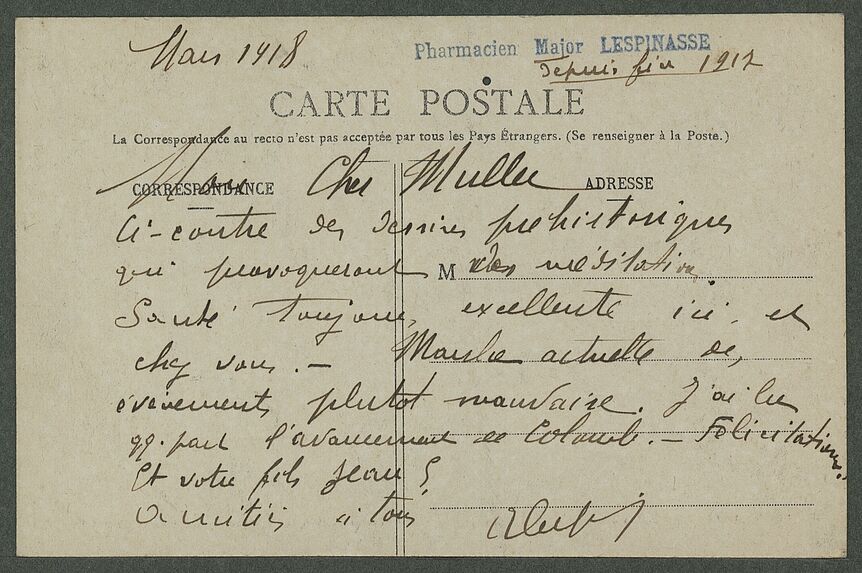 Mars 1918
Pharmacien Major LESPINASSE
Depuis fin 1917
CARTE POSTALE
La Correspondance au recto n'est pas acceptée par tous les Pays Étrangers. (Se renseigner à la Poste.)
CORRESPONDANCE ADRESSE
Cher Muller
Ci-contre des dessins préhistoriques
qui provoqueront M vos méditations
Santé toujours excellente ici et
chez vous. — Marche actuelle des
évènements plutôt mauvaise. J'ai lu
qq. part l'avancement de Colomb. — Félicitations.
Et votre fils Jean ?
Amitiés à tous